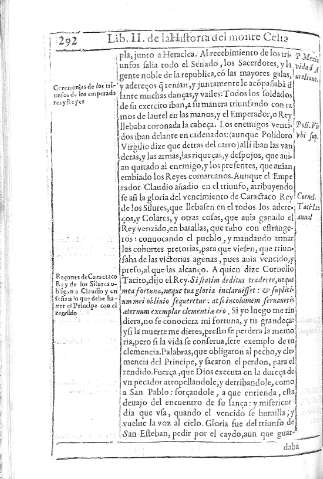 292 Lib. II. de la Historia del monte Celia
pla, junto a Heraclea. Al recebimiento de los tri-
unfos salia todo el Senado, los Sacerdotes, y la
gente noble de la republica, cō las mayores galas,
y adereços q̄ tenian, y juntamente le acōpañabā
Ceremonias de los tri-
unfos de los emperado
res y Reyes
muchas danças, y vailes: Todos los soldados
de su exercito iban, a su manera triunfando con ra
mos de laurel en las manos, y el Emperador, o Rey
llebaba coronada la cabeça. Los enemigos venci-
dos iban delante encadenados: (aunque Polidoro
Virgilio dize que detras del carro) alli iban las van
deras, y las armas, las riqueças, y despojos, que aui-
an quitado al enemigo, y los presentes, que auian
embiado los Reyes comarcanos. Aunque el Empe
rador Claudio añadio en el triunfo, arribyendo
se asi la gloria del vencimiento de Caractaco Rey
de los Silures, que llebasen en el todos los adere-
ços, y Colares, y otras cosas, que auia ganado el
Rey venzido, en batallas, que tubo con estrange-
ros: conuocando el pueblo, y mandando tomar
las cohortes pretorias, para que viesen, que triun-
faba de las victorias agenas, pues auia vencido, y
preso, al que las alcanço. A quien dize Cornelio
Tacito, dijo el Rey. Si statim deditus traderer, neque
mea fortuna, neque tua gloria inclaruisset: & suplici-
um mei oblivio sequeretur: at si incolumem seruaueris
aeternum exemplar clementiae ero. Si yo luego me rin
diera, no se conociera mi fortuna, y tu grandeça:
y si la muerte me dieres, presto se perdera la memo
ria, pero si la vida se conserua, sere exemplo de tu
clemencia. Palabras, que obligaron al pecho, y cle
mencia del Principe, y sacaron el perdon, para el
rendido. Fuerça, que Dios executa en la dureça de
vn pecador atropellandole, y derribandole, como
a San Pablo: forçandole, a que entienda, esta
devajo del encuentro de su lança: y misericor
dia que vsa, quando el vencido se humilla, y
vuelue la voz al cielo. Gloria fue del triunfo de
San Esteban, pedir por el caydo, aun que guar-
daba
Raçones de Caractaco
Rey de los Silures
Claudio
Cornel.
Tacit.